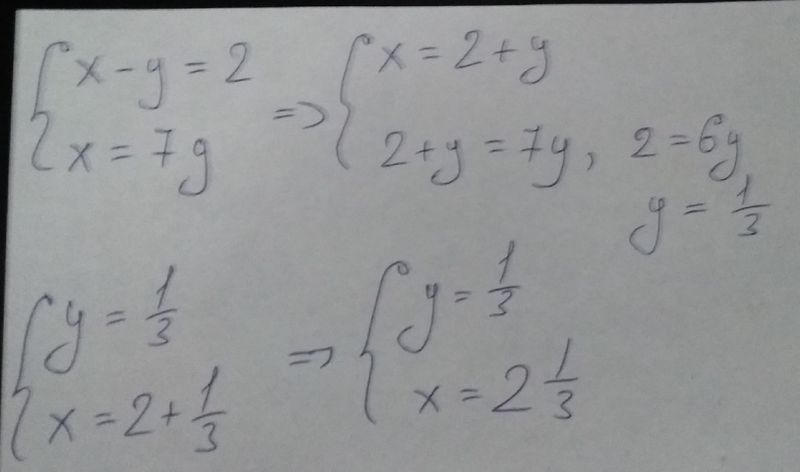 { x - y = 2
x = 7y
=> { x = 2 + y
2 + y = 7y, 2 = 6y
y = 1/3
{ y = 1/3
x = 2 + 1/3
=> { y = 1/3
x = 2 1/3